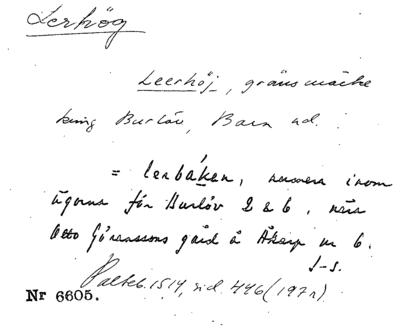 Lerhög
Leerhöj, gränsmärke
kring Burlöv, Bara hd.
= lerbåken, numera inom
ägorna för Burlöv 2 & 6, nära
Otto Göranssons gård å Åkarp nr 6.
J-s.
Palteb. 1514, sid. 446 (197r)
Nr 6605.